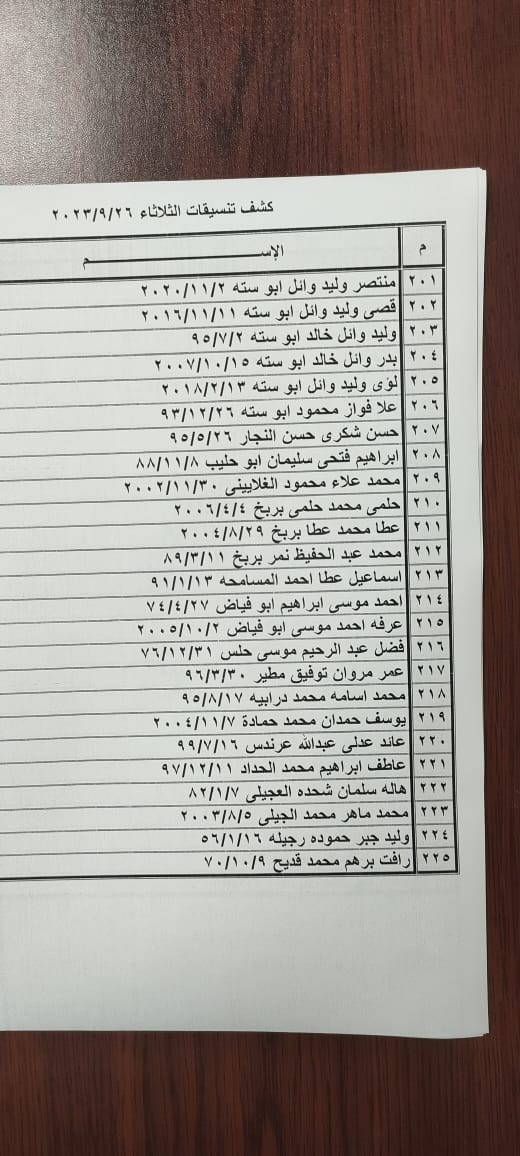 كشف تنسيقات الثلاثاء ٢٠٢٣/٩/٢٦
م الإســـــــــم
٢٠١ منتصر وليد وائل ابو سته ٢٠٢٠/١١/٢
٢٠٢ قصى وليد وائل ابو سته ٢٠١٦/١١/١١
٢٠٣ وليد وائل خالد ابو سته ٩٥/٧/٢
٢٠٤ بدر وائل خالد ابو سته ٢٠٠٧/١٠/١٥
٢٠٥ لؤى وليد وائل ابو سته ٢٠١٨/٢/١٣
٢٠٦ علا فواز محمود ابو سته ٩٣/١٢/٢٦
٢٠٧ حسن شكرى حسن النجار ٩٥/٥/٢٦
٢٠٨ ابراهيم فتحى سليمان ابو حليب ٨٨/١١/٨
٢٠٩ محمد علاء محمود الغلايينى ٢٠٠٢/١١/٣٠
٢١٠ حلمى محمد حلمى بربخ ٢٠٠٦/٤/٤
٢١١ عطا محمد عطا بربخ ٢٠٠٤/٨/٢٩
٢١٢ محمد عبد الحفيظ نمر بربخ ٨٩/٣/١١
٢١٣ اسماعيل عطا احمد المسامحه ٩١/١/١٣
٢١٤ احمد موسى ابراهيم ابو فياض ٧٤/٤/٢٧
٢١٥ عرفه احمد موسى ابو فياض ٢٠٠٥/١٠/٢
٢١٦ فضل عبد الرحيم موسى حلس ٧٦/١٢/٣١
٢١٧ عمر مروان توفيق مطير ٩٦/٣/٣٠
٢١٨ محمد اسامه محمد درابيه ٩٥/٨/١٧
٢١٩ يوسف حمدان محمد حمادة ٢٠٠٤/١١/٧
٢٢٠ عائد عدلى عبدالله عرندس ٩٩/٧/١٦
٢٢١ عاطف ابراهيم محمد الحداد ٩٧/١٢/١١
٢٢٢ هاله سلمان شحده العجيلى ٨٢/١/٧
٢٢٣ محمد ماهر محمد الجيلى ٢٠٠٣/٨/٥
٢٢٤ وليد جبر حموده رجيله ٥٦/١/١٦
٢٢٥ رافت برهم محمد قديح ٧٠/١٠/٩